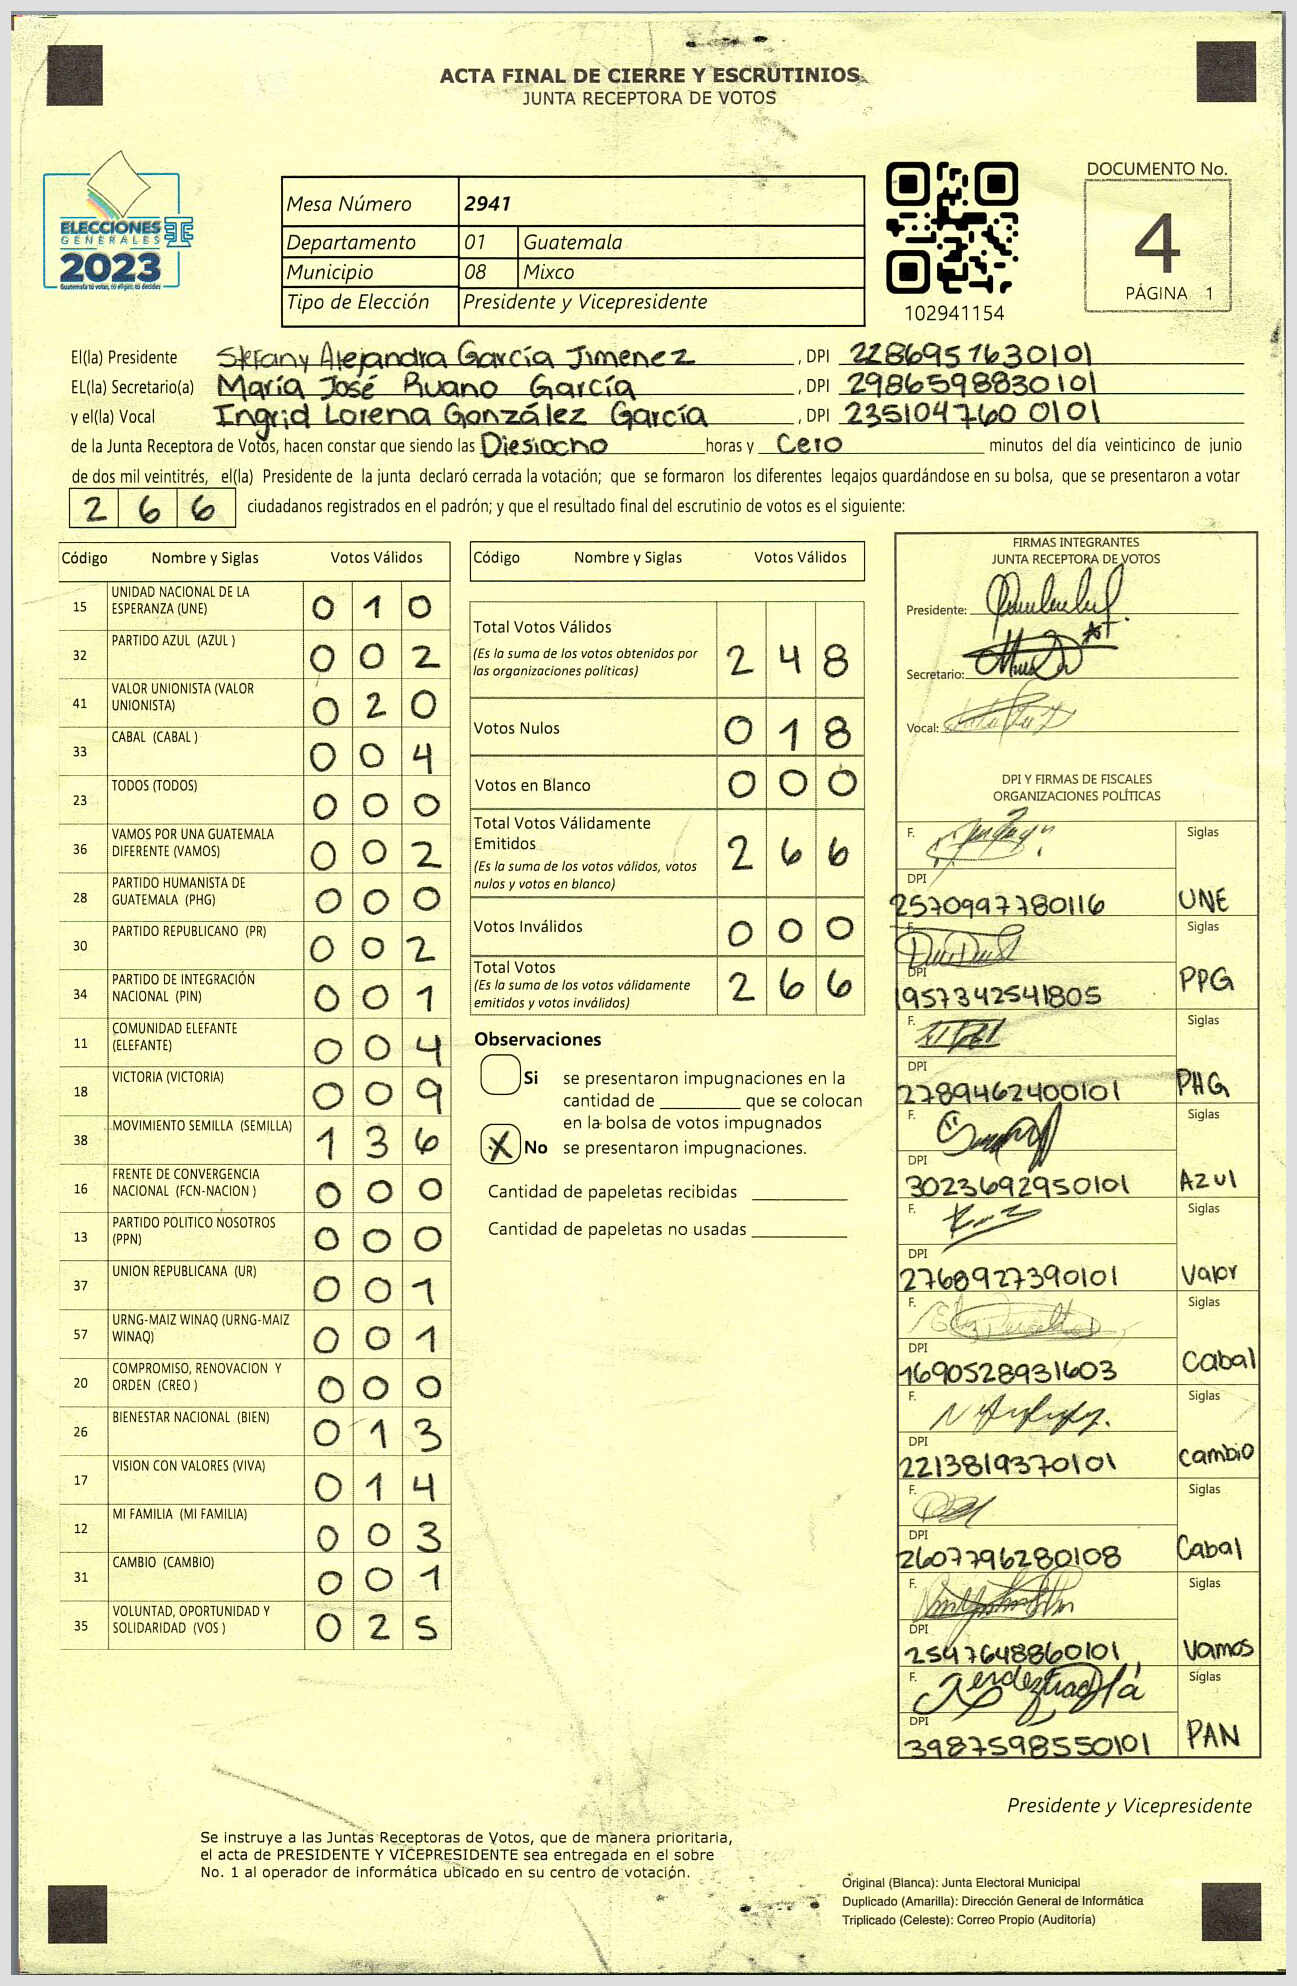 ACTA FINAL DE CIERRE Y ESCRUTINIOS
JUNTA RECEPTORA DE VOTOS
ELECCIONES
GENERALES
2023
Guatemala tú votas, tú eliges, tú decides
Mesa Número 2941
Departamento 01 Guatemala
Municipio 08 Mixco
Tipo de Elección Presidente y Vicepresidente
102941154
DOCUMENTO No.
4
PÁGINA 1
El(la) Presidente Stefany Alejandra García Jimenez, DPI 2286951630101
EL(la) Secretario(a) María José Ruano García, DPI 2986598830101
y el(la) Vocal Ingrid Lorena González García, DPI 2351047600101
de la Junta Receptora de Votos, hacen constar que siendo las Diesiocho horas y Cero minutos del día veinticinco de junio
de dos mil veintitrés, el(la) Presidente de la junta declaró cerrada la votación; que se formaron los diferentes legajos guardándose en su bolsa, que se presentaron a votar
266 ciudadanos registrados en el padrón; y que el resultado final del escrutinio de votos es el siguiente:
Código Nombre y Siglas Votos Válidos
15 UNIDAD NACIONAL DE LA ESPERANZA (UNE) 010
32 PARTIDO AZUL (AZUL ) 002
41 VALOR UNIONISTA (VALOR UNIONISTA) 020
33 CABAL (CABAL ) 004
23 TODOS (TODOS) 000
36 VAMOS POR UNA GUATEMALA DIFERENTE (VAMOS) 002
28 PARTIDO HUMANISTA DE GUATEMALA (PHG) 000
30 PARTIDO REPUBLICANO (PR) 002
34 PARTIDO DE INTEGRACIÓN NACIONAL (PIN) 001
11 COMUNIDAD ELEFANTE (ELEFANTE) 004
18 VICTORIA (VICTORIA) 009
38 MOVIMIENTO SEMILLA (SEMILLA) 136
16 FRENTE DE CONVERGENCIA NACIONAL (FCN-NACION ) 000
13 PARTIDO POLITICO NOSOTROS (PPN) 000
37 UNION REPUBLICANA (UR) 001
57 URNG-MAIZ WINAQ (URNG-MAIZ WINAQ) 001
20 COMPROMISO, RENOVACION Y ORDEN (CREO ) 000
26 BIENESTAR NACIONAL (BIEN) 013
17 VISION CON VALORES (VIVA) 014
12 MI FAMILIA (MI FAMILIA) 003
31 CAMBIO (CAMBIO) 001
35 VOLUNTAD, OPORTUNIDAD Y SOLIDARIDAD (VOS ) 025
Código Nombre y Siglas Votos Válidos
Total Votos Válidos 248
(Es la suma de los votos obtenidos por
las organizaciones políticas)
Votos Nulos 018
Votos en Blanco 000
Total Votos Válidamente
Emitidos 266
(Es la suma de los votos válidos, votos
nulos y votos en blanco)
Votos Inválidos 000
Total Votos 266
(Es la suma de los votos válidamente
emitidos y votos inválidos)
Observaciones
Si se presentaron impugnaciones en la
cantidad de ________ que se colocan
en la bolsa de votos impugnados
X No se presentaron impugnaciones.
Cantidad de papeletas recibidas ________
Cantidad de papeletas no usadas ________
FIRMAS INTEGRANTES
JUNTA RECEPTORA DE VOTOS
Presidente:
Secretario:
Vocal:
DPI Y FIRMAS DE FISCALES
ORGANIZACIONES POLÍTICAS
F. Siglas
DPI
2570997780116 UNE
F. Siglas
DPI
1957342541805 PPG
F. Siglas
DPI
2789462400101 PHG
F. Siglas
DPI
3023692950101 Azul
F. Siglas
DPI
2768927390101 Valor
F. Siglas
DPI
1690528931603 Cabal
F. Siglas
DPI
2213819370101 cambio
F. Siglas
DPI
2607796280108 Cabal
F. Siglas
DPI
2597648860101 Vamos
F. Siglas
DPI
3987598550101 PAN
Presidente y Vicepresidente
Se instruye a las Juntas Receptoras de Votos, que de manera prioritaria,
el acta de PRESIDENTE Y VICEPRESIDENTE sea entregada en el sobre
No. 1 al operador de informática ubicado en su centro de votación.
Original (Blanca): Junta Electoral Municipal
Duplicado (Amarilla): Dirección General de Informática
Triplicado (Celeste): Correo Propio (Auditoría)